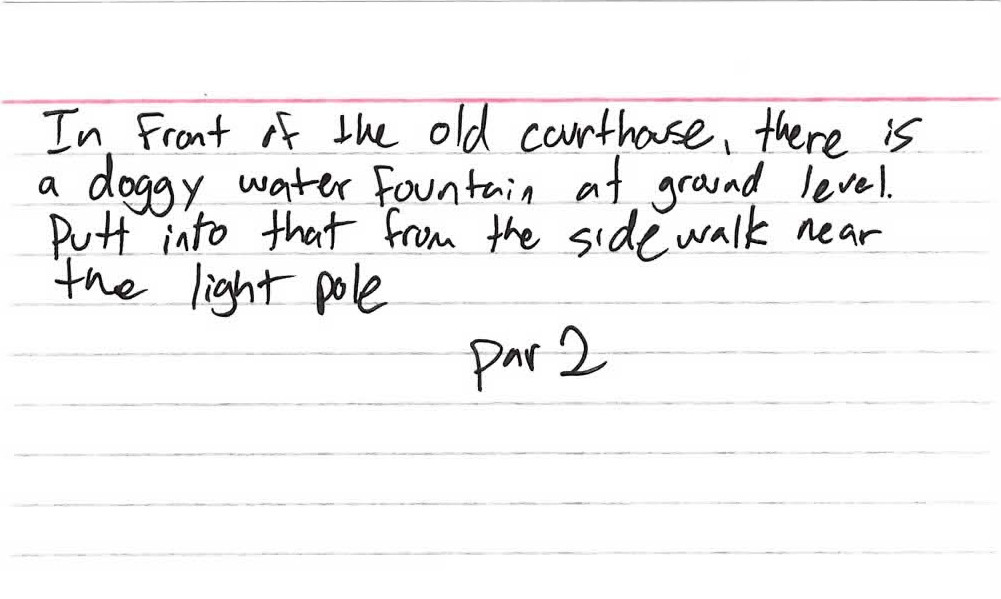 In Front of the old courthouse, there is
a doggy water fountain at ground level.
Putt into that from the sidewalk near
the light pole
par 2